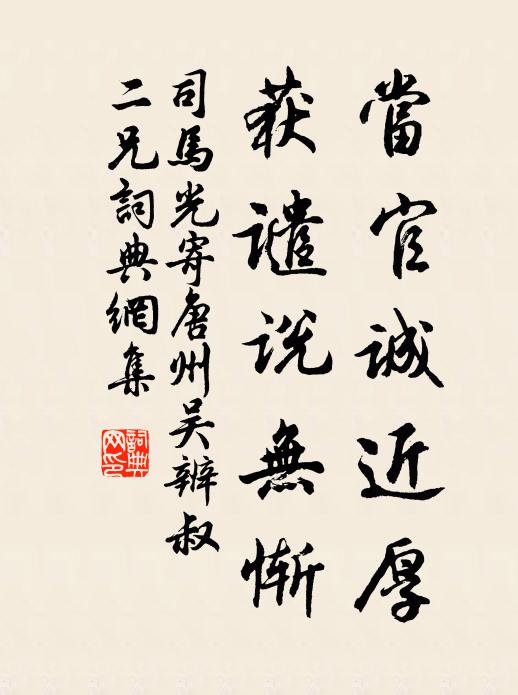 當官誠近厚
获譴说無慚
司馬光寄唐州吴辨叔
二兄詞典網集
詞典
网印